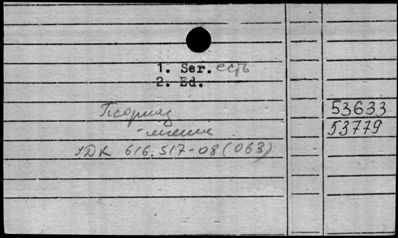 1. Ser. есть
2. Ed.
Псориаз
53633
-лечение
53779
УДК 616.517-08(063)